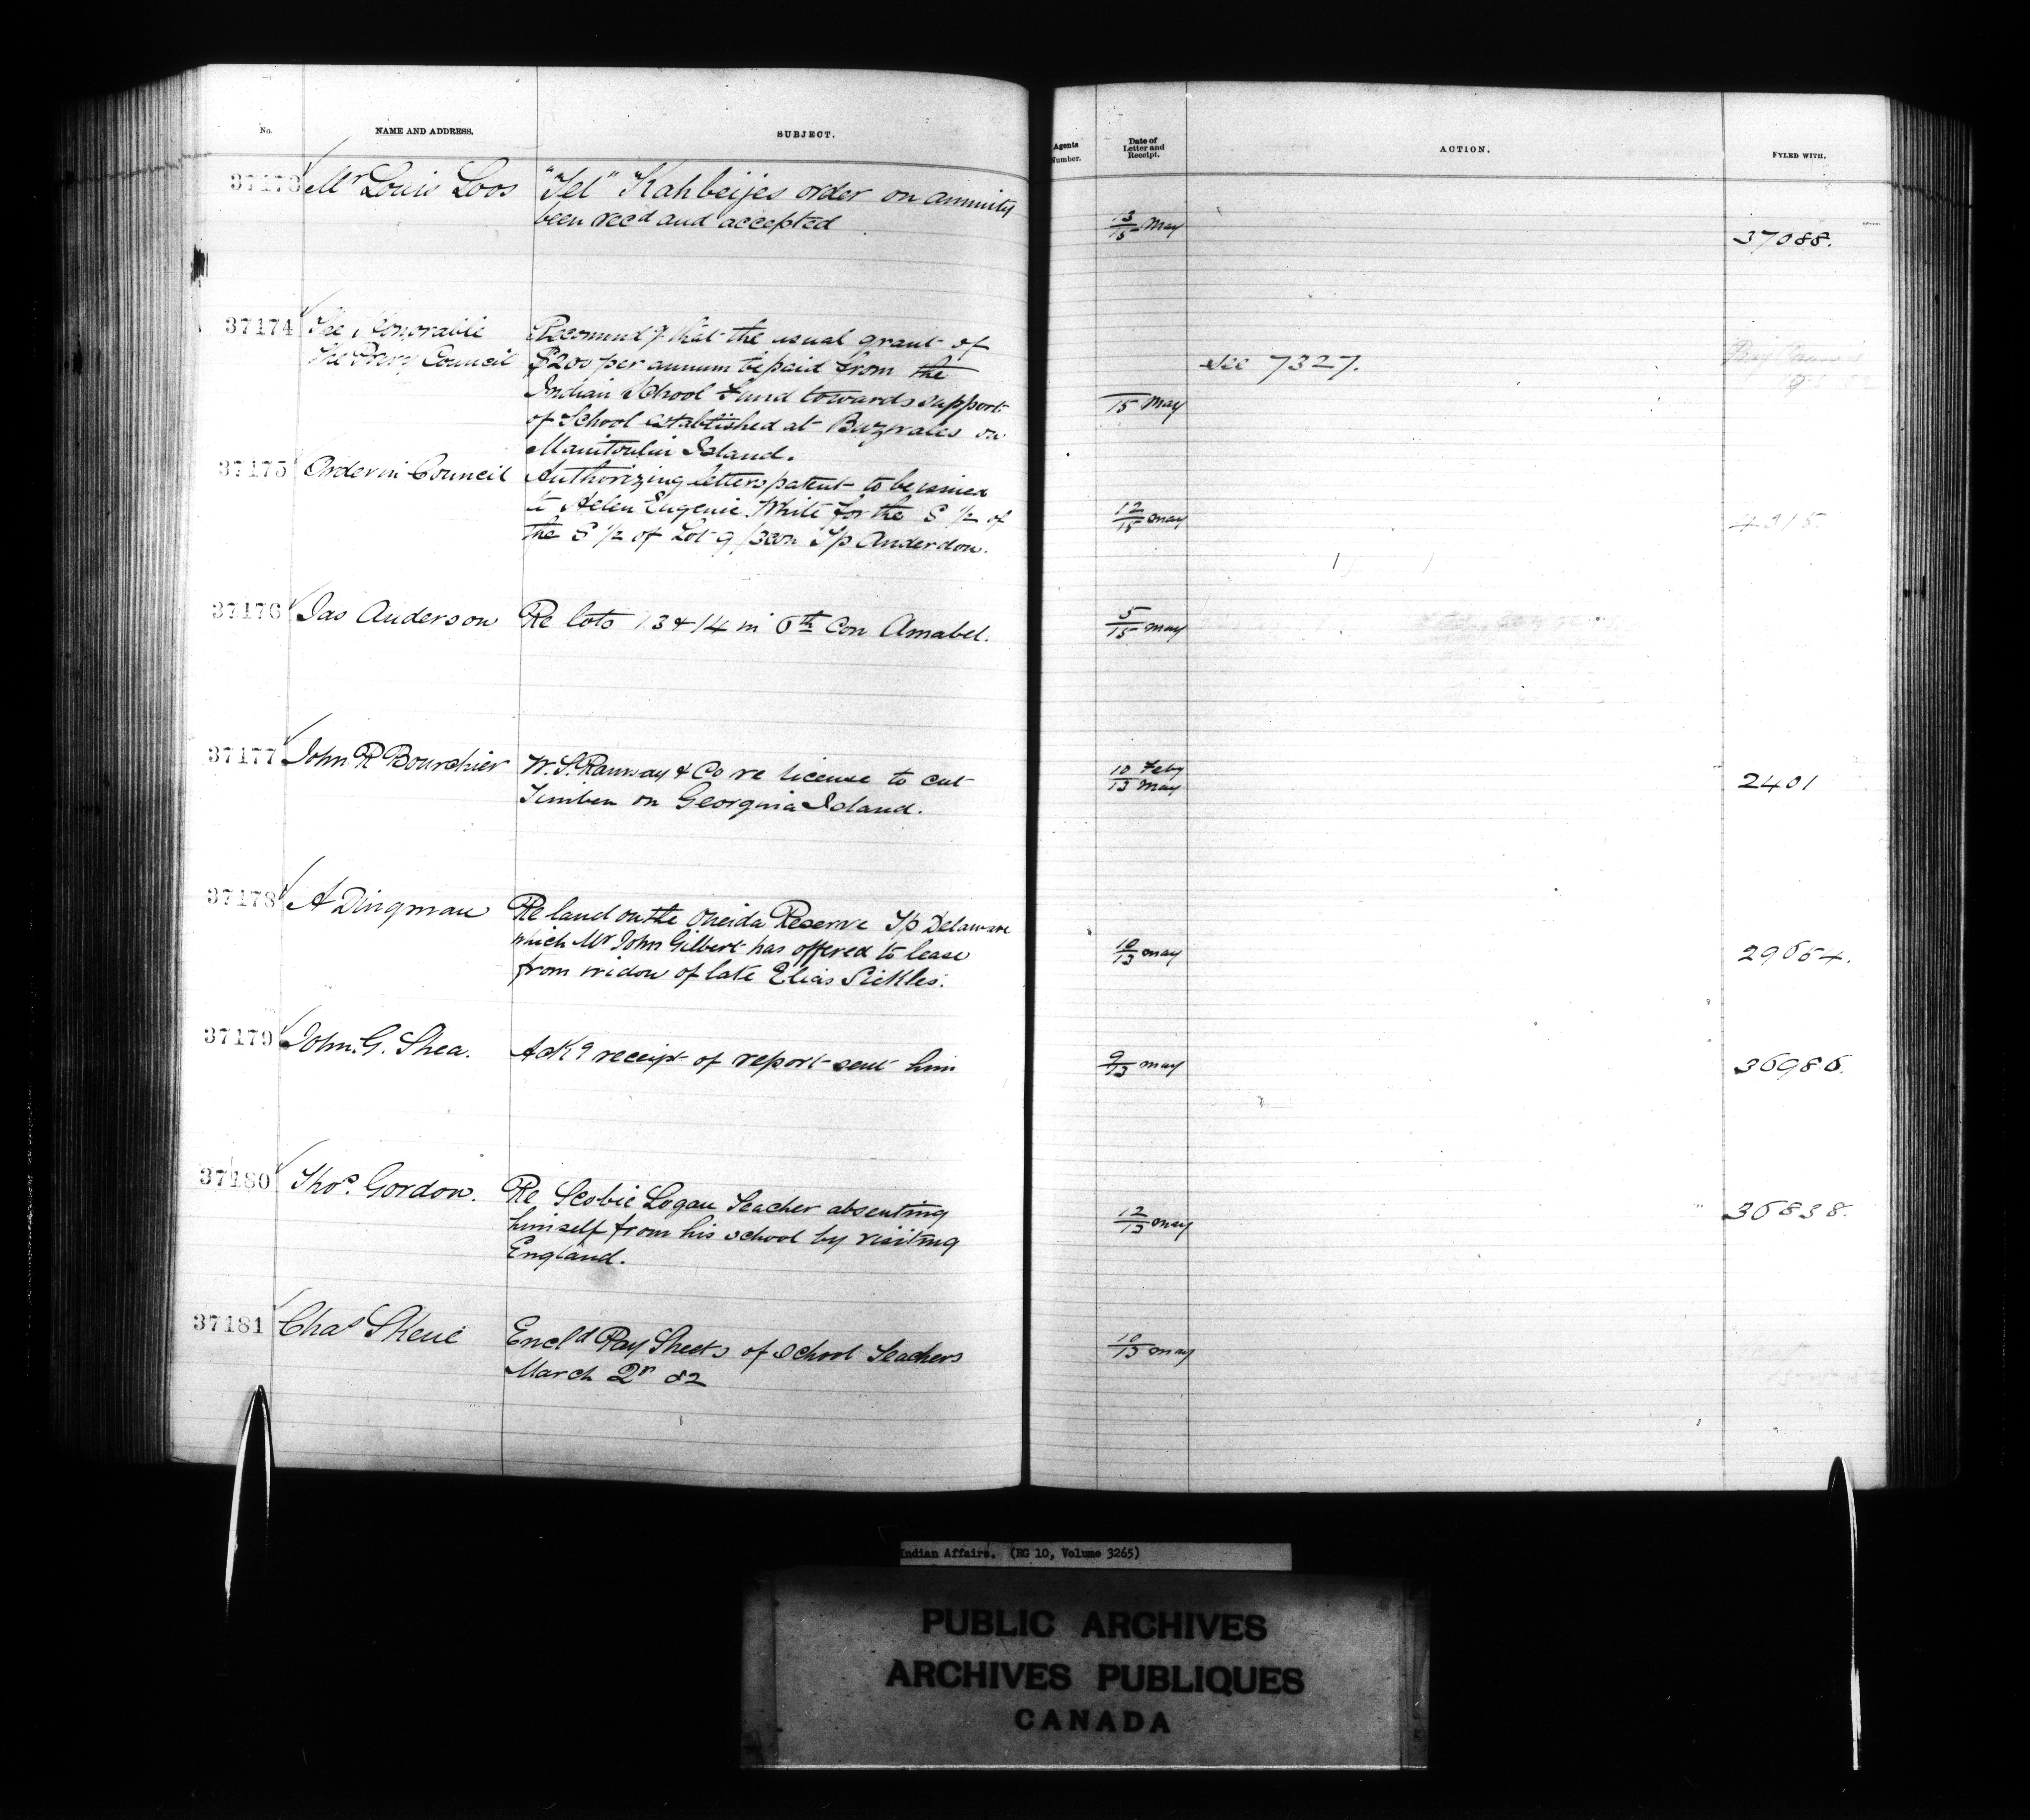 No. NAME AND ADDRESS. SUBJECT. Agents Number. Date of Letter and Receipt. ACTION. FYLED WITH.
37173 Mr Louis Loos "Tel" Kahbeijes order on annuity
been recd and accepted 13/15 May 37088.
37174 The Honorable Recommendg that the usual grant of
The Privy Council $200 per annum be paid from the See 7327.
Indian School Fund towards support 15 May
of School established at on
Manitoulin Island.
37175 Order in Council Authorizing letters patent to be issued
to Helen Eugenie White for the S 1/2 of 12/15 May 4315
the S 1/2 of Lot 9 /3 con Tp Anderdon.
37176 Jas Anderson Re lots 13 & 14 in 6th Con Amabel. 5/15 May
37177 John R Bourchier W. S. Ramsay & Co re license to cut 10 Feby
Timber on Georgina Island. 13 May 2401
37178 A Dingman Re land on the Oneida Reserve Tp Delaware
which Mr John Gilbert has offered to lease 10/13 May 29664.
from widow of late Elias Sickles.
37179 John. G. Shea. Ackg receipt of report sent him 9/13 May 36986.
37180 Thos. Gordon. Re Scobie Logan Teacher absenting
himself from his school by visiting 12/13 May 36838.
England.
37181 Chas Skene Encld Pay Sheets of School Teachers 10/13 May
March Qr 82
Indian Affairs. (RG 10, Volume 3265)
PUBLIC ARCHIVES
ARCHIVES PUBLIQUES
CANADA